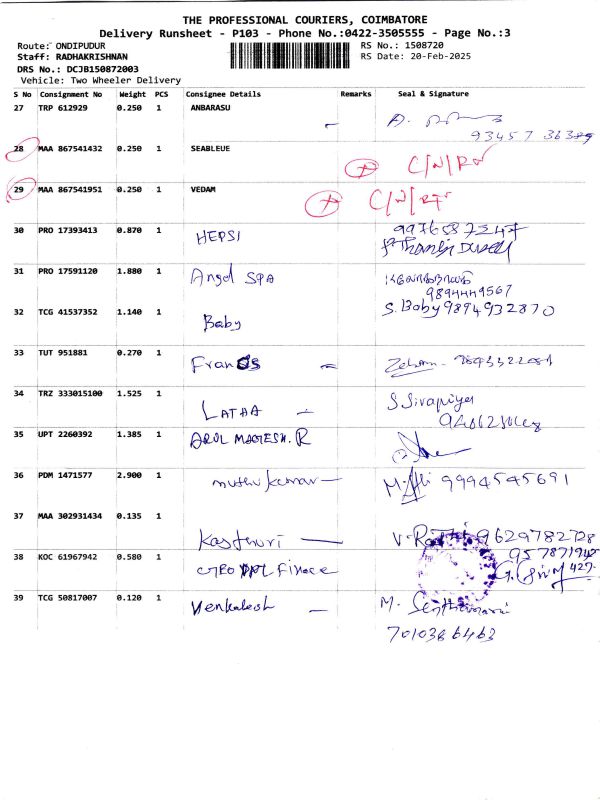 THE PROFESSIONAL COURIERS, COIMBATORE
Delivery Runsheet - P103 - Phone No.:0422-3505555 - Page No.:3
Route: ONDIPUDUR RS No.: 1508720
Staff: RADHAKRISHNAN RS Date: 20-Feb-2025
DRS No.: DCJB150872003
Vehicle: Two Wheeler Delivery
S No Consignment No Weight PCS Consignee Details Remarks Seal & Signature
27 TRP 612929 0.250 1 ANBARASU
28 MAA 867541432 0.250 1 SEABLEUE
29 MAA 867541951 0.250 1 VEDAM
30 PRO 17393413 0.870 1 HEPSI
31 PRO 17591120 1.880 1 Angel SPA
9894449567
32 TCG 41537352 1.140 1 Baby S. Baby 9894932870
33 TUT 951881 0.270 1 Francis
34 TRZ 333015100 1.525 1 LATHA S Sivapriya
35 UPT 2260392 1.385 1 ARUL MAGESH. R
36 PDM 1471577 2.900 1 muthu kumar 9994545691
37 MAA 302931434 0.135 1 Kasthuri 9629782728
38 KOC 61967942 0.580 1
39 TCG 50817007 0.120 1 Venkatesh M.
7010386463